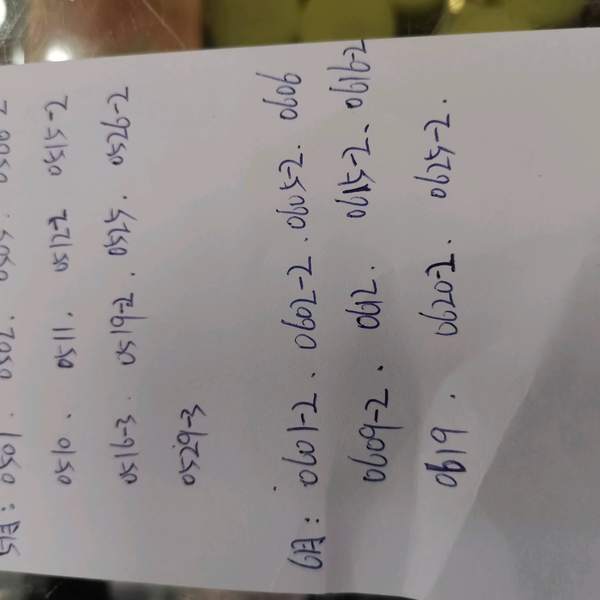 5月: 0501. 0502. 0505.
0510. 0511. 0512-2 0515-2
0516-3. 0519-2. 0525. 0526-2
0529-3
6月: 0601-2. 0602-2. 0605-2. 0606
0609-2. 0612. 0615-2、0616-2
0619. 0620-2. 0625-2.